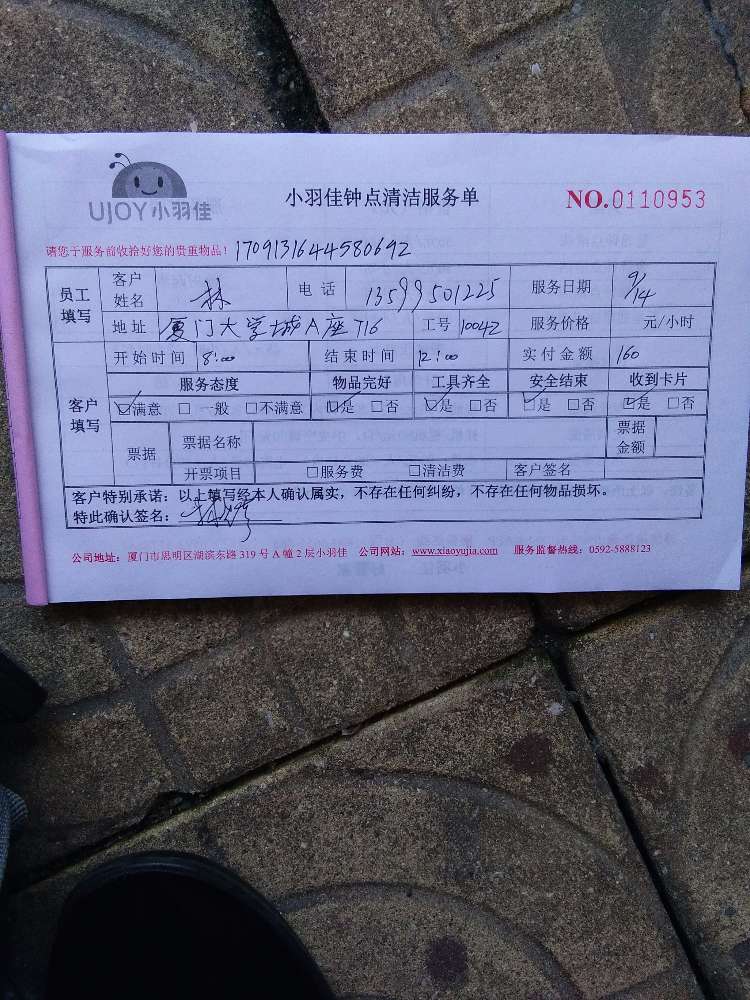 UJOY小羽佳
小羽佳钟点清洁服务单
NO.0110953
请您于服务前收拾好您的贵重物品！ 1709131644580692
员工填写 客户姓名 林 电话 13599501225 服务日期 9/14
地址 厦门大学城A座716 工号 10042 服务价格 元/小时
客户填写 开始时间 8:00 结束时间 12:00 实付金额 160
服务态度 物品完好 工具齐全 安全结束 收到卡片
☑满意 □一般 □不满意 ☑是 □否 ☑是 □否 ☑是 □否 ☑是 □否
票据 票据名称 票据金额
开票项目 □服务费 □清洁费 客户签名
客户特别承诺：以上填写经本人确认属实，不存在任何纠纷，不存在任何物品损坏。
特此确认签名：
公司地址：厦门市思明区湖滨东路 319 号 A 幢 2 层小羽佳 公司网站：www.xiaoyujia.com 服务监督热线：0592-5888123